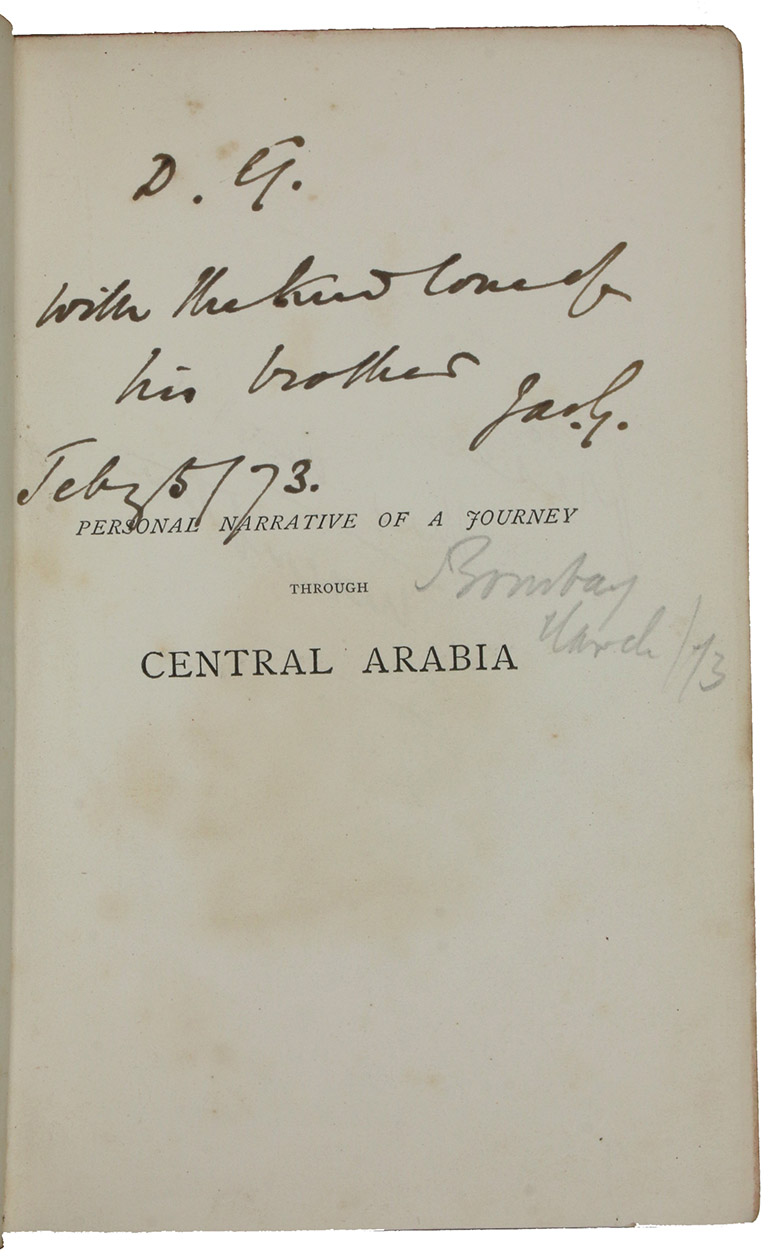 D. G.
with the kind love of
his brother
Jas. G.
Feby 5/73.
PERSONAL NARRATIVE OF A JOURNEY
THROUGH
Bombay
March /73
CENTRAL ARABIA